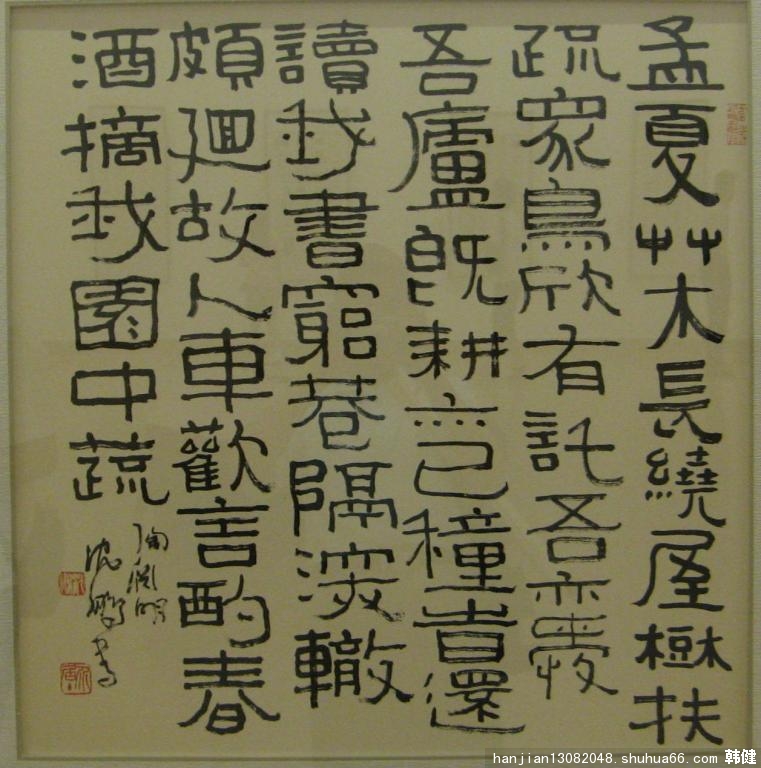 孟夏艸木長繞屋樹扶
疏眾鳥欣有託吾亦愛
吾廬既耕亦已種旹還
讀我書窮巷隔深轍
頗迴故人車歡言酌春
酒摘我園中蔬
陶淵明
沈鵬書
hanjian13082048.shuhua66.com 韩健